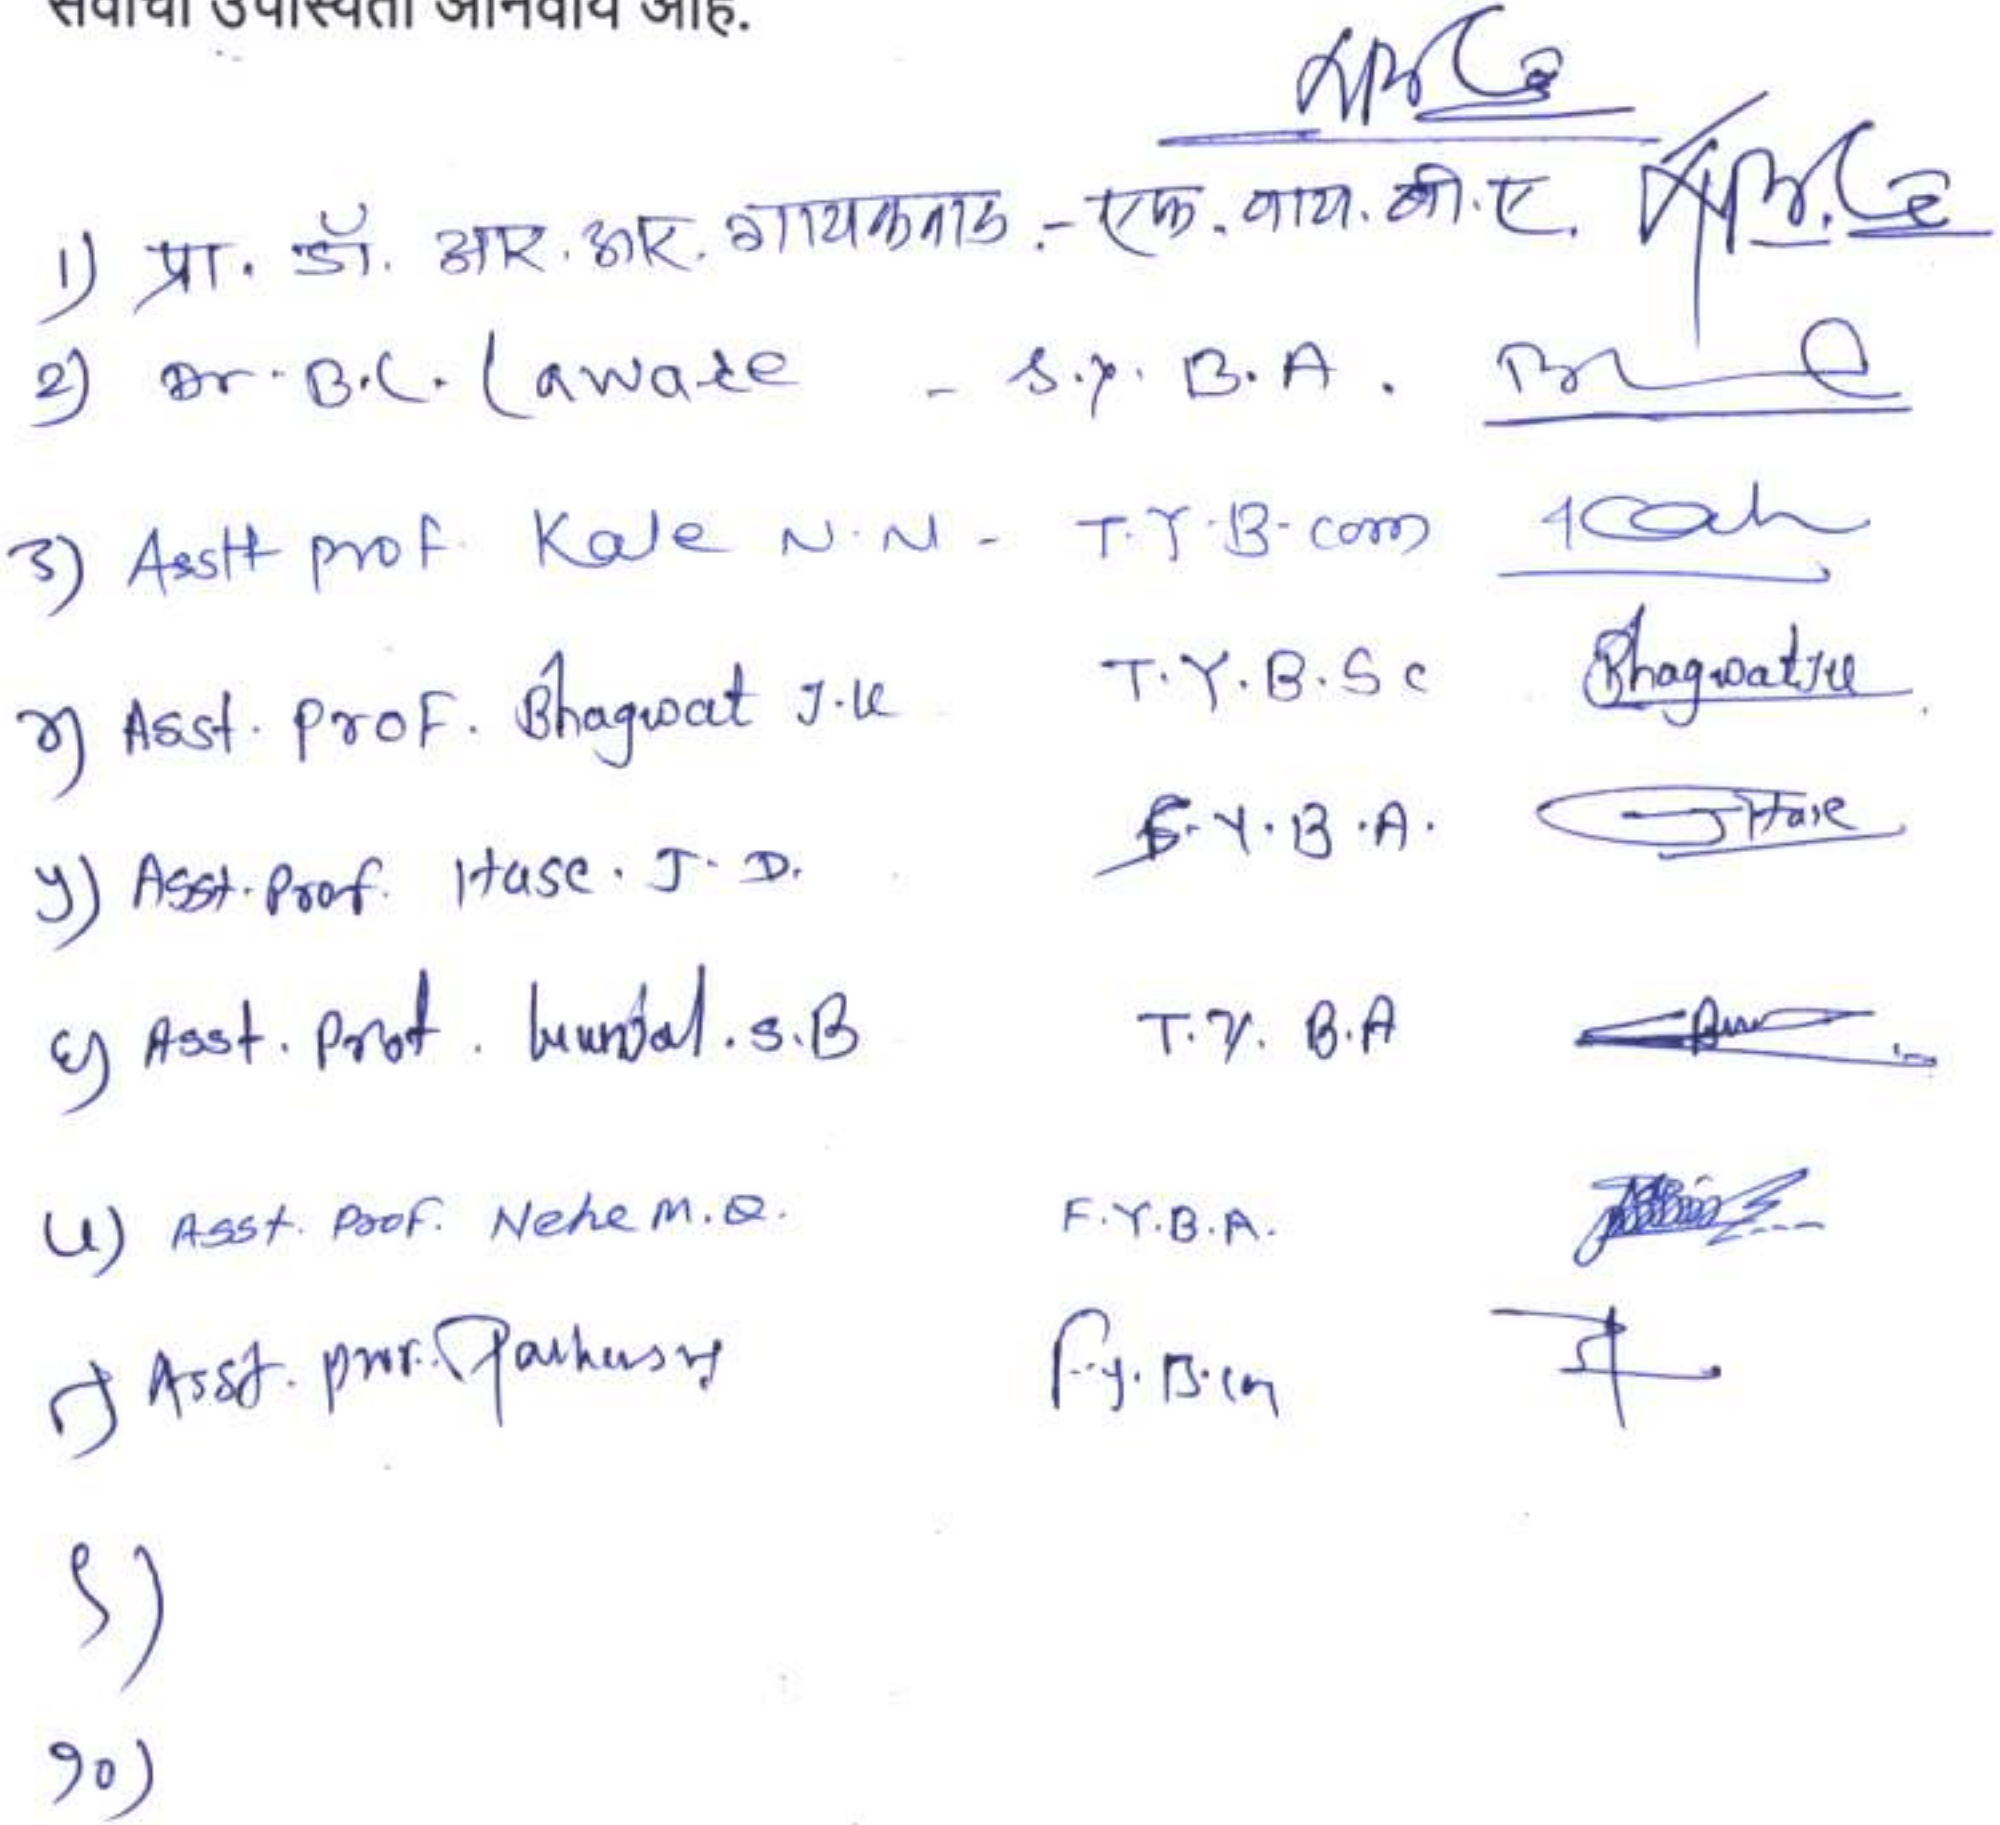 सर्वांची उपस्थिती अनिवार्य आहे.
1) प्रा. डॉ. आर. आर. गायकवाड - एफ. वाय. बी. ए.
2) Dr. B.C. Laware - S.Y. B.A.
3) Asstt prof. Kale N.N - T.Y.B-com
४) Asst. Prof. Bhagwat J.K T.Y.B.Sc Bhagwat JK
५) Asst. Prof. Hase. J. D. S.Y.B.A. JHase
६) Asst. Prof. S.B T.Y. B.A
७) Asst. Prof. Nehe M.D. F.Y.B.A.
८) Asst. prof. F.y. B.com
९)
१०)